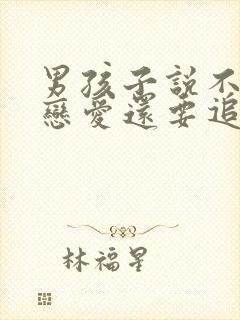 男孩子說不
戀愛還要追
林福星